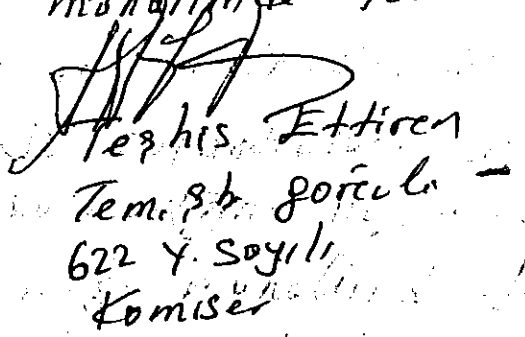 Teşhis Ettiren
Tem. şb. görevli -
622 Y. Sayılı
Komiser